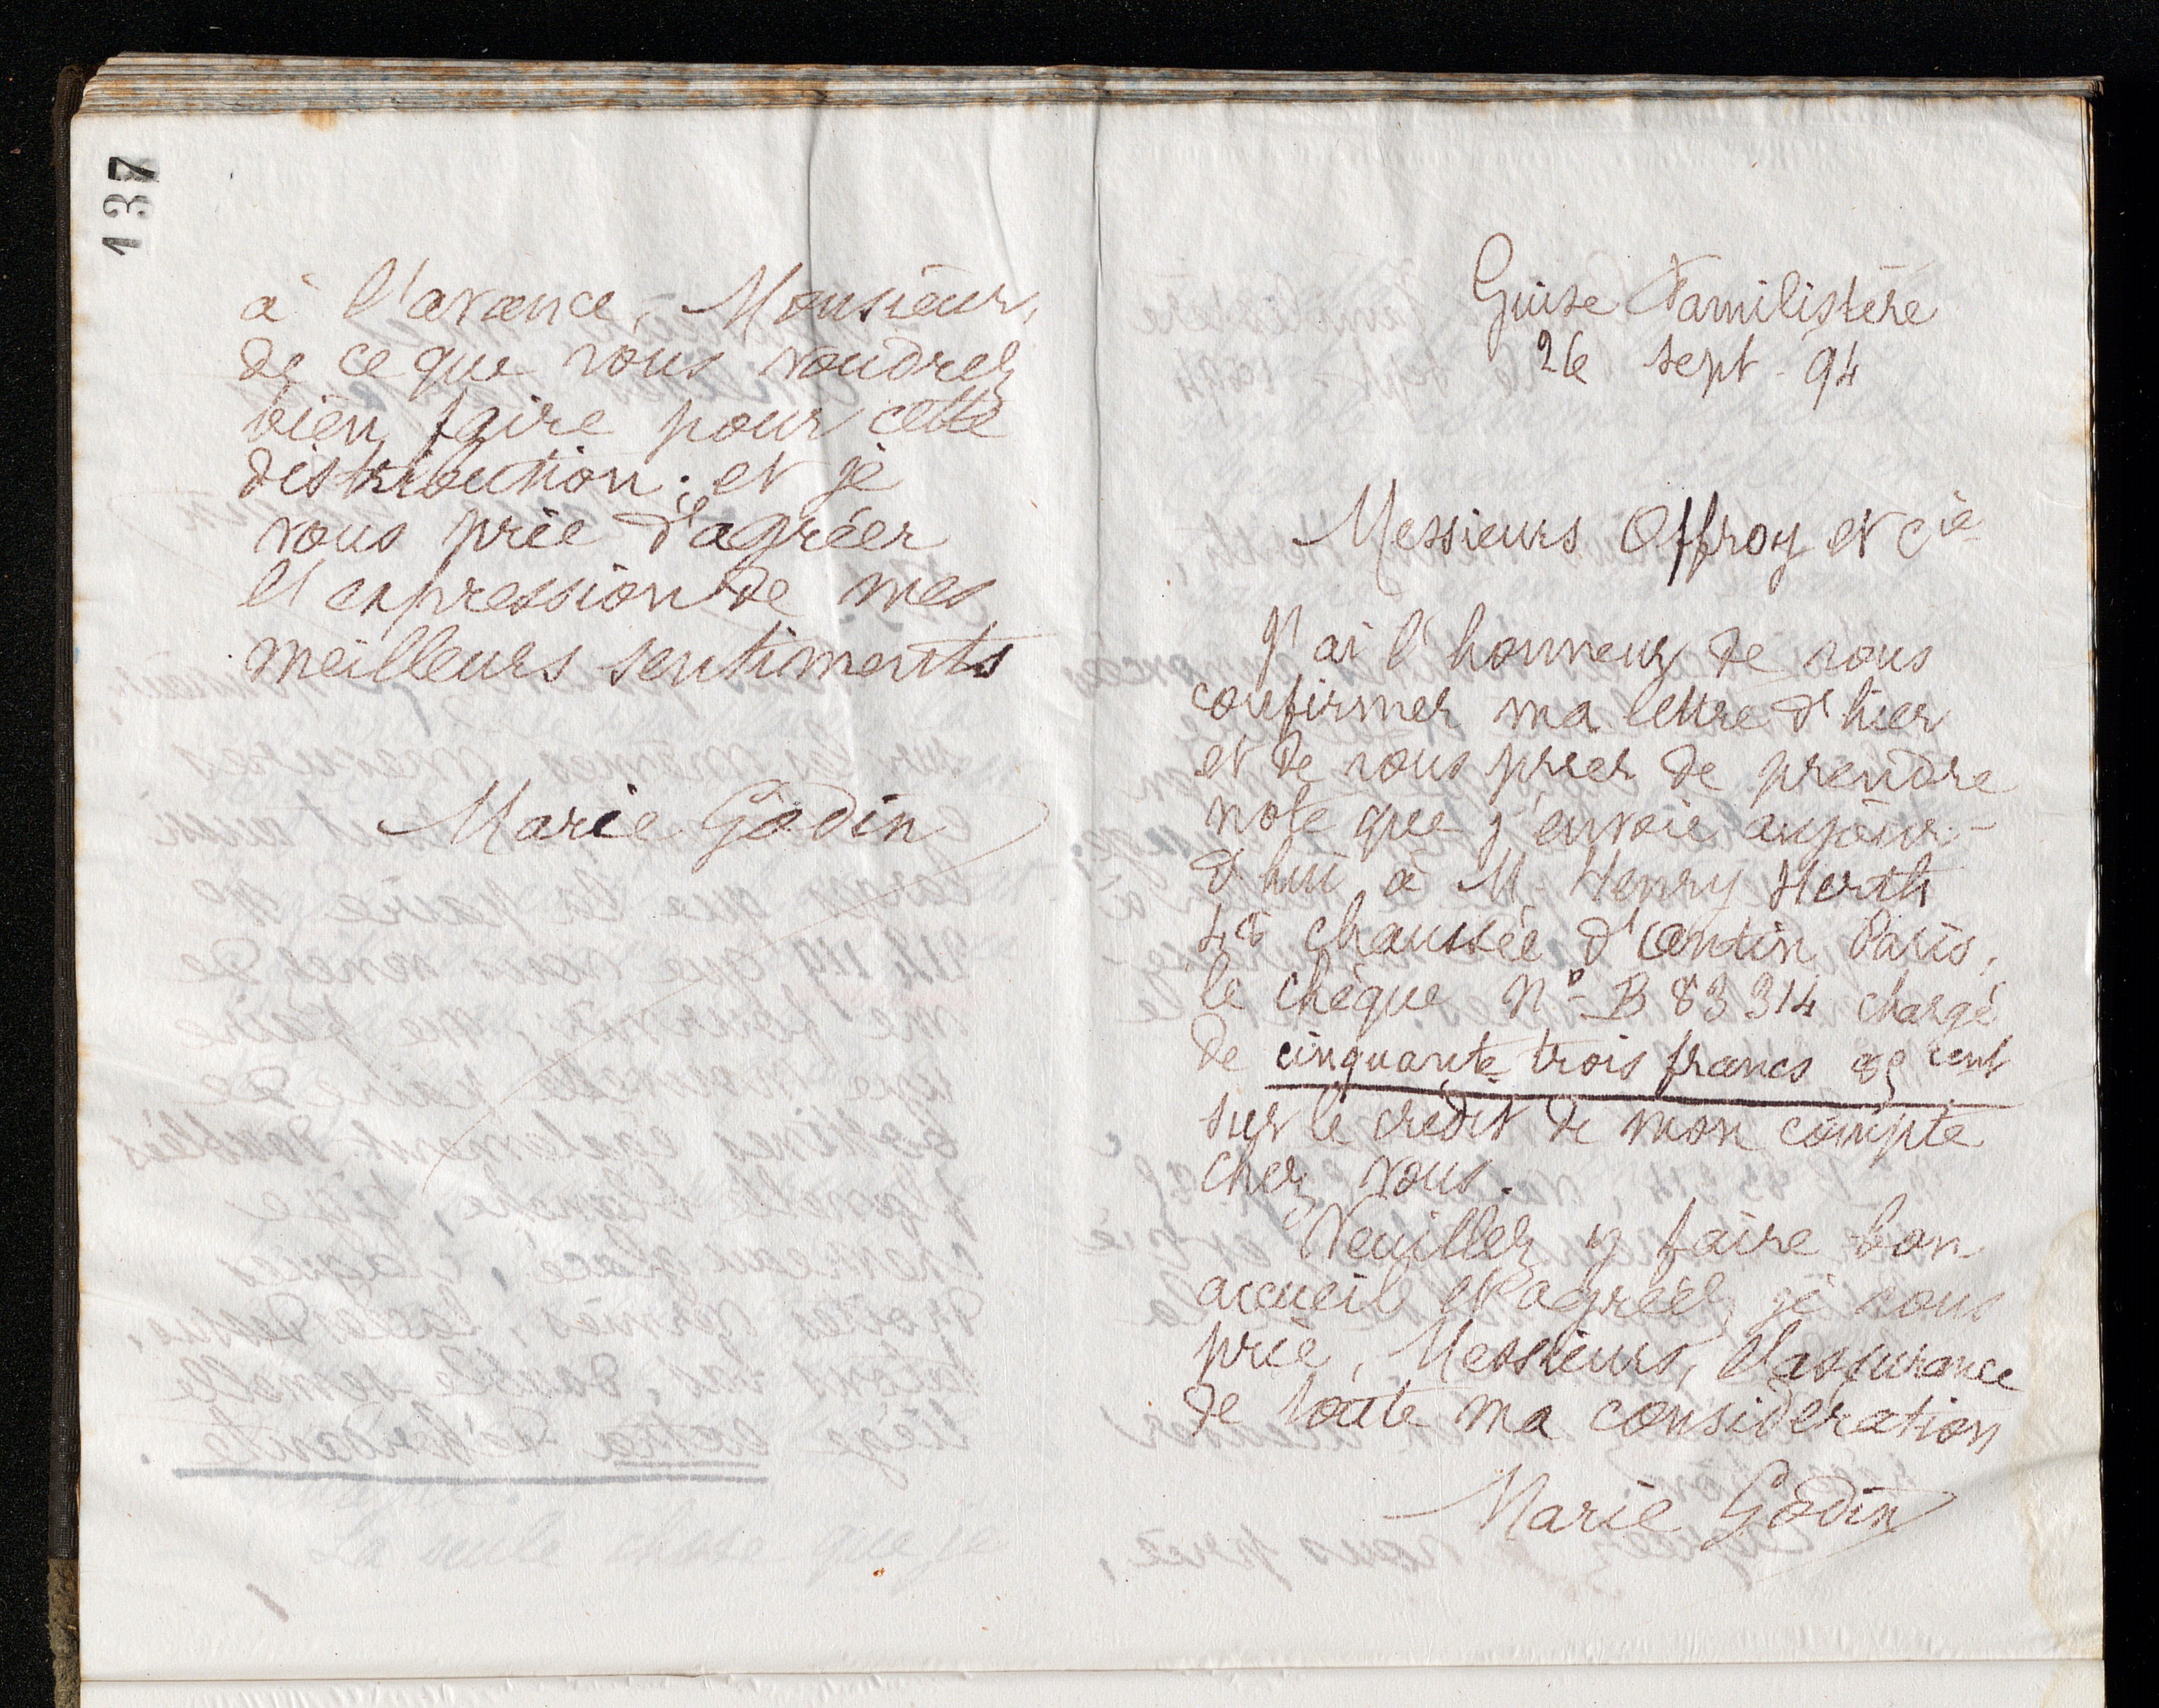 137
à l'avance, Monsieur,
de ce que vous voudrez
bien faire pour cette
distribution; et je
vous prie d'agréer
l'expression de mes
meilleurs sentiments
Marie Godin
Guise Familistère
26 sept. 94
Messieurs Offroy et Cie
J'ai l'honneur de vous
confirmer ma lettre d'hier
et de vous prier de prendre
note que j'envoie aujour-
d'hui à M. Henry Herth
48 chaussée d'antin Paris,
le chèque No B 83314 chargé
de cinquante trois francs 85 cent
sur le crédit de mon compte
chez vous.
Veuillez y faire bon
accueil et agréer, je vous
prie, Messieurs, l'assurance
de toute ma considération
Marie Godin